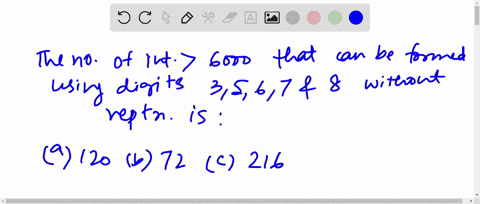 The no. of int. > 6000 that can be formed
using digits 3,5,6,7 & 8 without
reptn. is :
(a) 120 (b) 72 (c) 216